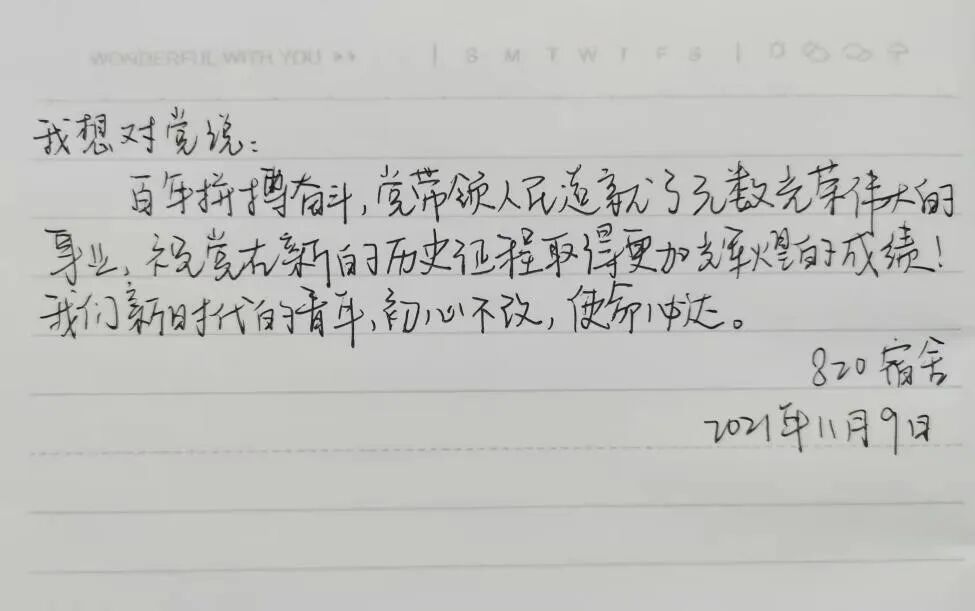 WONDERFUL WITH YOU >> | S M T W T F S |
我想对党说：
百年拼搏奋斗，党带领人民造就了无数光荣伟大的
事业，祝党在新的历史征程取得更加辉煌的成绩！
我们新时代的青年，初心不改，使命必达。
820宿舍
2021年11月9日